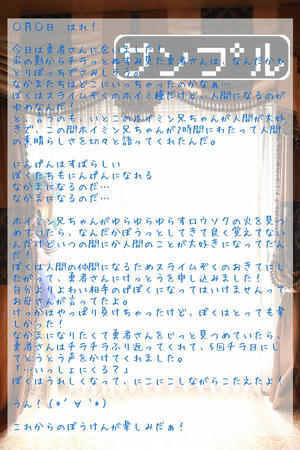 〇月〇日　はれ！
サンプル
今日は勇者さんに会いました！
岩の影からチラっとぬすみ見た勇者さんは、なんだかひ
とりぼっちでさみしそう。
なかまたちはどこにいっちゃったのかなぁ…
ぼくはスライムぞくのホイミ種だけど、人間になるのが
ゆめなんだ！
というのも、いとこのホイミン兄ちゃんが人間が大好
きで、この間ホイミン兄ちゃんが2時間にわたって人間
の素晴らしさを切々と語ってくれたんだ。
にんげんはすばらしい
ぼくたちもにんげんになれる
なかまになるのだ…
なかまになるのだ…
ホイミン兄ちゃんがゆらゆらゆらすロウソクの火を見つ
めていたら、なんだかぼうっとしてきて良く覚えてない
んだけどいつの間にか人間のことが大好きになってたん
だ！
ぼくは人間の仲間になるためスライムぞくのおきてにし
たがって、勇者さんにけっとうを申し込みました！
自分よりよわい相手のげぼくになってはいけませんって
お母さんが言ってたよ。
けっかはやっぱり負けちゃったけど、ぼくはとっても楽
しかった！
なかまになりたくて勇者さんをじっと見つめていたら、
勇者さんはチラチラふり返ってくれて、5回チラ目にし
てとうとう声をかけてくれました。
「…いっしょにくる？」
ぼくはうれしくなって、にこにこしながらこたえたよ！
うん！(*´∀｀*)
これからのぼうけんが楽しみだぁ！